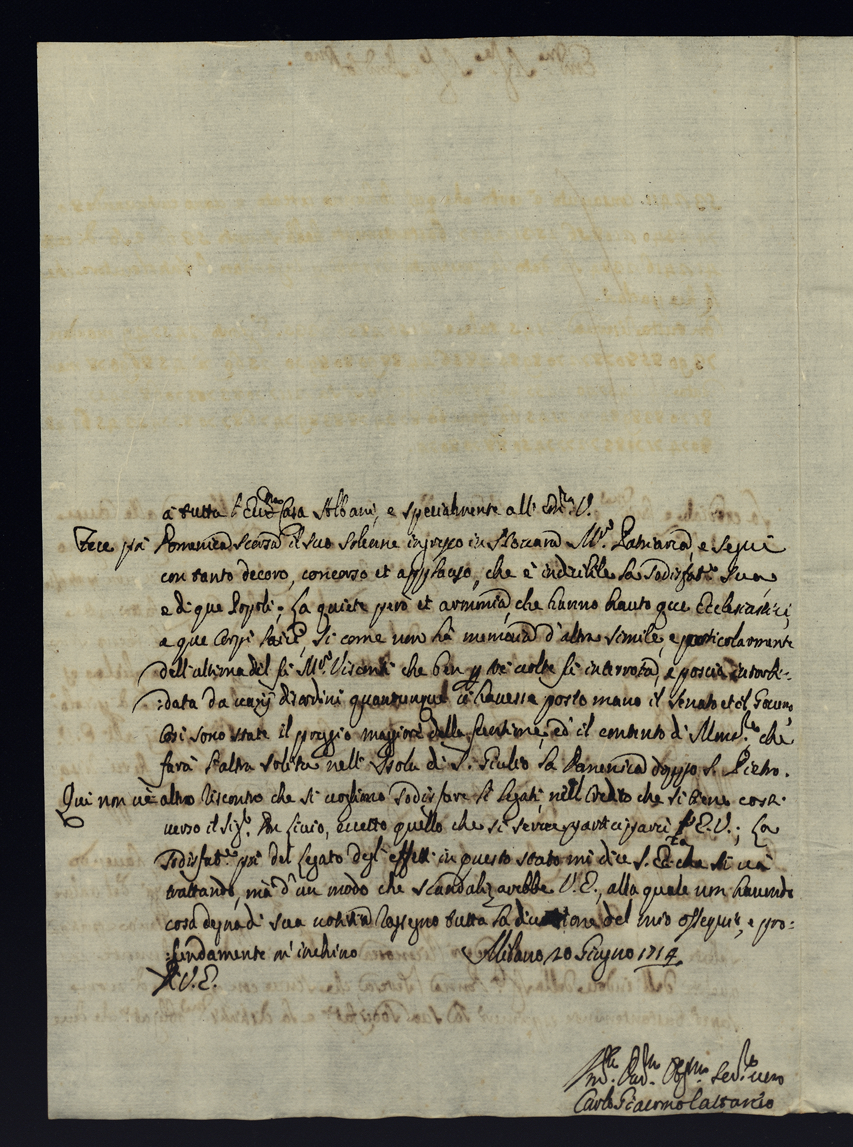 à tutta l'Ecc.ma Casa Albani, e specialmente all' Em.za V.
Fece poi Domenica scorsa il suo solenne ingresso in Novara M.r Patriarca, e seguì
con tanto decoro, concorso et applauso, che è indicibile la sodisfat.ne sua
e di que Popoli; La quiete però et armonia, che hanno hauto que Ecclesiastici,
e que Corpi laici, si come non hà memoria d'altra simile, e particolarmente
dell'ultima del fù M.r Visconti che ben p tre volte fù interrotta, e poscia intorbi-
data da varij disordini quantunque vi havesse posto mano il Senato et il Governo
così sono state il preggio maggiore della funtione, ed il contento di Mons.re che
farà l'altra solita nell'Isola di S. Giulio la Domenica doppo S. Pietro.
Qui non v'è altro riscontro che si vogliono sodisfare li legati, nell credito che si tiene costà
verso il Sig.r Don Livio, eccetto quello che si serve partecipare V.E.; La
sodisfat.ne poi del legato degl'effetti in questo stato mi dice S. Ecc.za che si và
trattando, mà d'un modo che scandalizarebbe V.E., alla quale non havendo
cosa degna di sua notitia rassegno tutta la divotione del mio ossequio, e pro-
fondamente m'inchino Milano, 20 Giugno 1714
D V.E.
Um.mo Dev.mo Obl.mo Ser.re vero
Carlo Giacomo Cattaneo